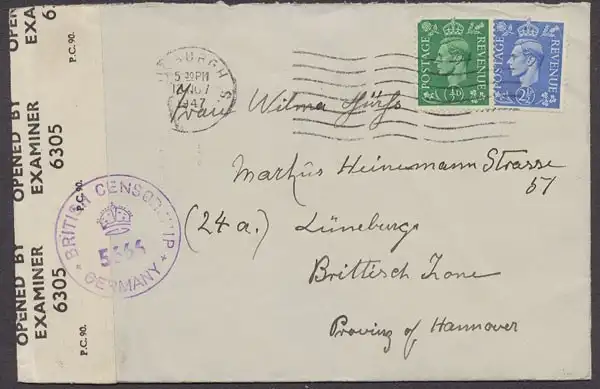 OPENED BY
EXAMINER
6305
P.C. 90.
OPENED BY
EXAMINER
6305
P.C. 90.
OPENED BY
EXAMINER
P.C. 90.
BRITISH CENSORSHIP
GERMANY
5 PM
NO
1947
POSTAGE REVENUE
½D
POSTAGE REVENUE
2½D
Frau Wilma
Markus Heinemann Strasse
57
(24 a.) Lüneburg
Brittisch Zone
Provinz of Hannover